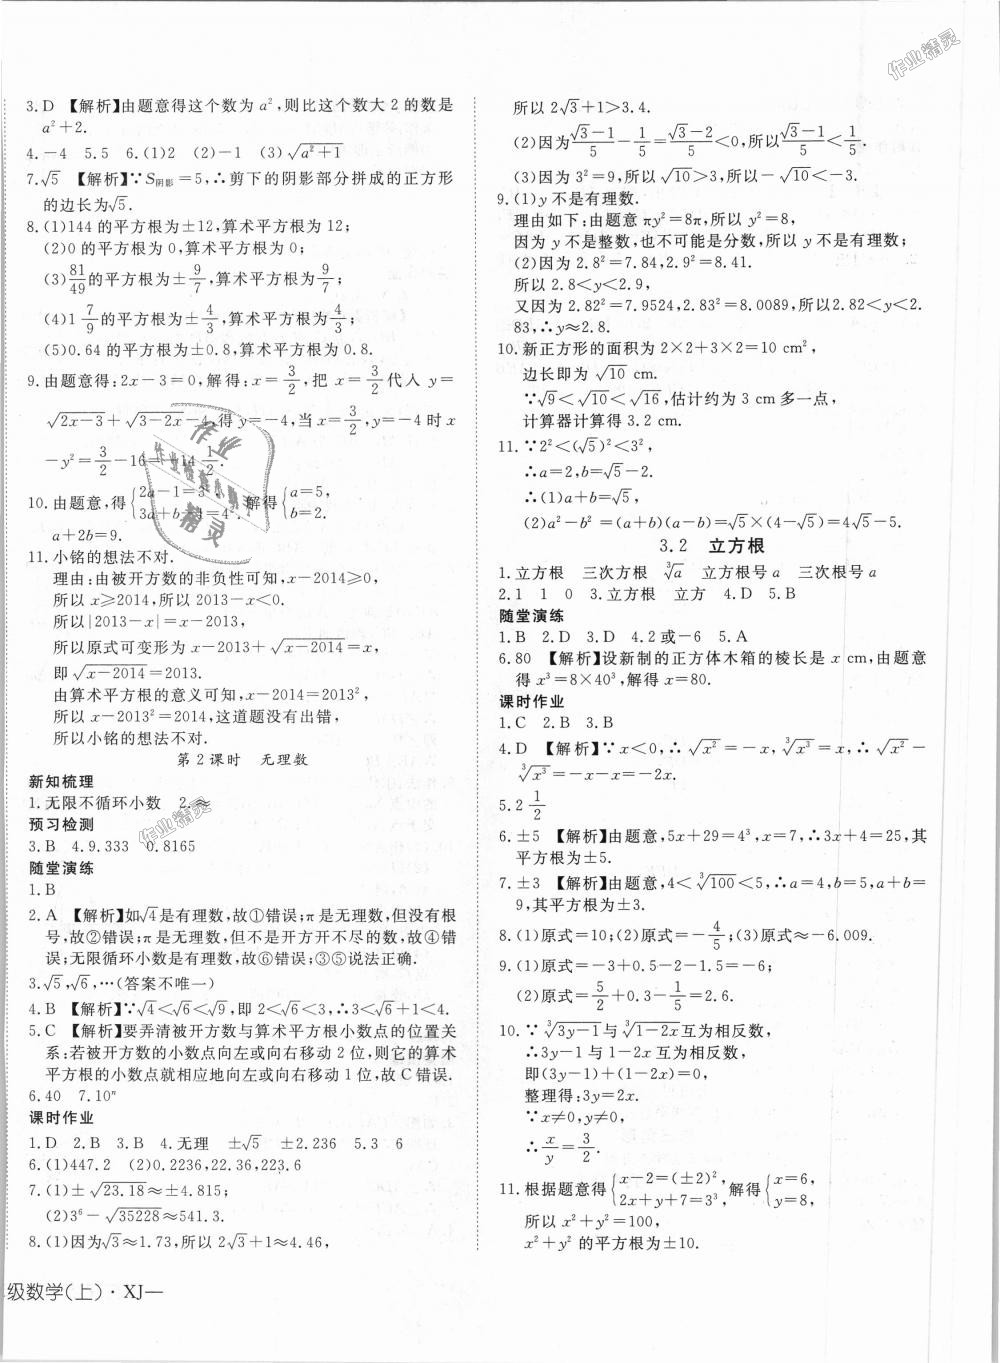 作业精灵
3.D 【解析】由题意得这个数为a²,则比这个数大2的数是
a²+2.
4.-4 5.5 6.(1)2 (2)-1 (3)√(a²+1)
7.√5 【解析】∵S阴影=5,∴剪下的阴影部分拼成的正方形
的边长为√5.
8.(1)144的平方根为±12,算术平方根为12;
(2)0的平方根为0,算术平方根为0;
(3)81/49的平方根为±9/7,算术平方根为9/7;
(4)1 7/9的平方根为±4/3,算术平方根为4/3;
(5)0.64的平方根为±0.8,算术平方根为0.8.
9.由题意得:2x-3=0,解得:x=3/2,把x=3/2代人y=
√(2x-3)+√(3-2x)-4,得y=-4,当x=3/2,y=-4时x
-y²=3/2-16=-14 1/2.
10.由题意,得{2a-1=3², 3a+b-1=4². 解得{a=5, b=2.
a+2b=9.
11.小铭的想法不对.
理由:由被开方数的非负性可知,x-2014≥0,
所以x≥2014,所以2013-x<0.
所以|2013-x|=x-2013,
所以原式可变形为x-2013+√(x-2014)=x,
即√(x-2014)=2013.
由算术平方根的意义可知,x-2014=2013²,
所以x-2013²=2014,这道题没有出错,
所以小铭的想法不对.
第2课时 无理数
新知梳理
1.无限不循环小数 2.≈
预习检测
3.B 4.9.333 0.8165
随堂演练
1.B
2.A 【解析】如√4是有理数,故①错误;π是无理数,但没有根
号,故②错误;π是无理数,但不是开方开不尽的数,故④错
误;无限循环小数是有理数,故⑥错误;③⑤说法正确.
3.√5,√6,…(答案不唯一)
4.B 【解析】∵√4<√6<√9,即2<√6<3,∴3<√6+1<4.
5.C 【解析】要弄清被开方数与算术平方根小数点的位置关
系:若被开方数的小数点向左或向右移动2位,则它的算术
平方根的小数点就相应地向左或向右移动1位,故C错误.
6.40 7.10ⁿ
课时作业
1.D 2.B 3.B 4.无理 ±√5 ±2.236 5.3 6
6.(1)447.2 (2)0.2236,22.36,223.6
7.(1)±√23.18≈±4.815;
(2)3⁶-√35228≈541.3.
8.(1)因为√3≈1.73,所以2√3+1≈4.46,
级数学(上)·XJ—
所以2√3+1>3.4.
(2)因为(√3-1)/5-1/5=(√3-2)/5<0,所以(√3-1)/5<1/5.
(3)因为3²=9,所以√10>3,所以-√10<-3.
9.(1)y不是有理数.
理由如下:由题意πy²=8π,所以y²=8,
因为y不是整数,也不可能是分数,所以y不是有理数;
(2)因为2.8²=7.84,2.9²=8.41.
所以2.8<y<2.9,
又因为2.82²=7.9524,2.83²=8.0089,所以2.82<y<2.
83,∴y≈2.8.
10.新正方形的面积为2×2+3×2=10 cm²,
边长即为√10 cm.
∵√9<√10<√16,估计约为3 cm多一点,
计算器计算得3.2 cm.
11.∵2²<(√5)²<3²,
∴a=2,b=√5-2.
∴(1)a+b=√5,
(2)a²-b²=(a+b)(a-b)=√5×(4-√5)=4√5-5.
3.2 立方根
1.立方根 三次方根 ³√a 立方根号a 三次根号a
2.1 1 0 3.立方根 立方 4.D 5.B
随堂演练
1.B 2.D 3.D 4.2或-6 5.A
6.80 【解析】设新制的正方体木箱的棱长是x cm,由题意
得x³=8×40³,解得x=80.
课时作业
1.C 2.B 3.B
4.D 【解析】∵x<0,∴√x²=-x,³√x³=x,∴√x²-
³√x³=-x-x=-2x.
5.2 1/2
6.±5 【解析】由题意,5x+29=4³,x=7,∴3x+4=25,其
平方根为±5.
7.±3 【解析】由题意,4<³√100<5,∴a=4,b=5,a+b=
9,其平方根为±3.
8.(1)原式=10;(2)原式=-4/5;(3)原式≈-6.009.
9.(1)原式=-3+0.5-2-1.5=-6;
(2)原式=5/2+0.3-1/5=2.6.
10.∵³√(3y-1)与³√(1-2x)互为相反数,
∴3y-1与1-2x互为相反数,
即(3y-1)+(1-2x)=0,
整理得:3y=2x.
∵x≠0,y≠0,
∴x/y=3/2.
11.根据题意得{x-2=(±2)², 2x+y+7=3³, 解得{x=6, y=8,
所以x²+y²=100,
x²+y²的平方根为±10.